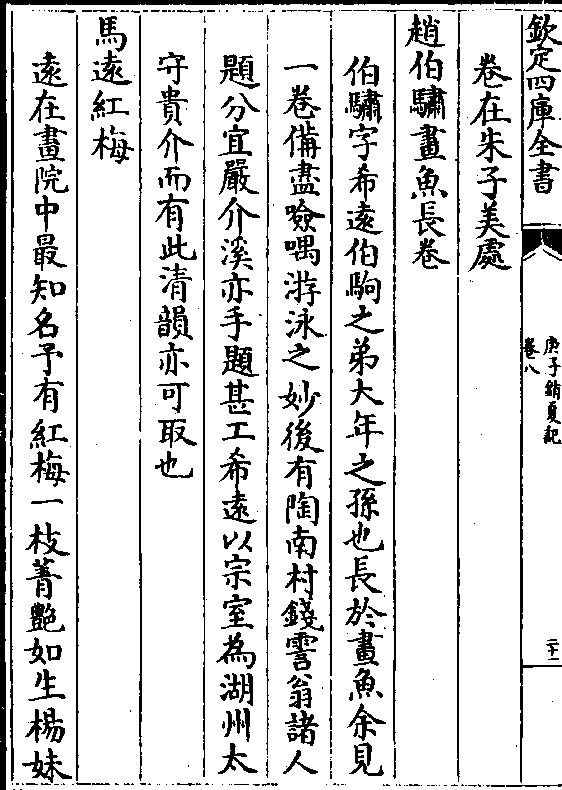 欽定四庫全書
庚子銷夏記
卷八
二十一
卷在朱子美處
趙伯驌畫魚長卷
伯驌字希遠伯駒之弟大年之孫也長於畫魚余見
一卷備盡噞喁游泳之妙後有陶南村錢霅翁諸人
題分宜嚴介溪亦手題甚工希遠以宗室為湖州太
守貴介而有此清韻亦可取也
馬遠紅梅
遠在畫院中最知名予有紅梅一枝菁艷如生楊妹